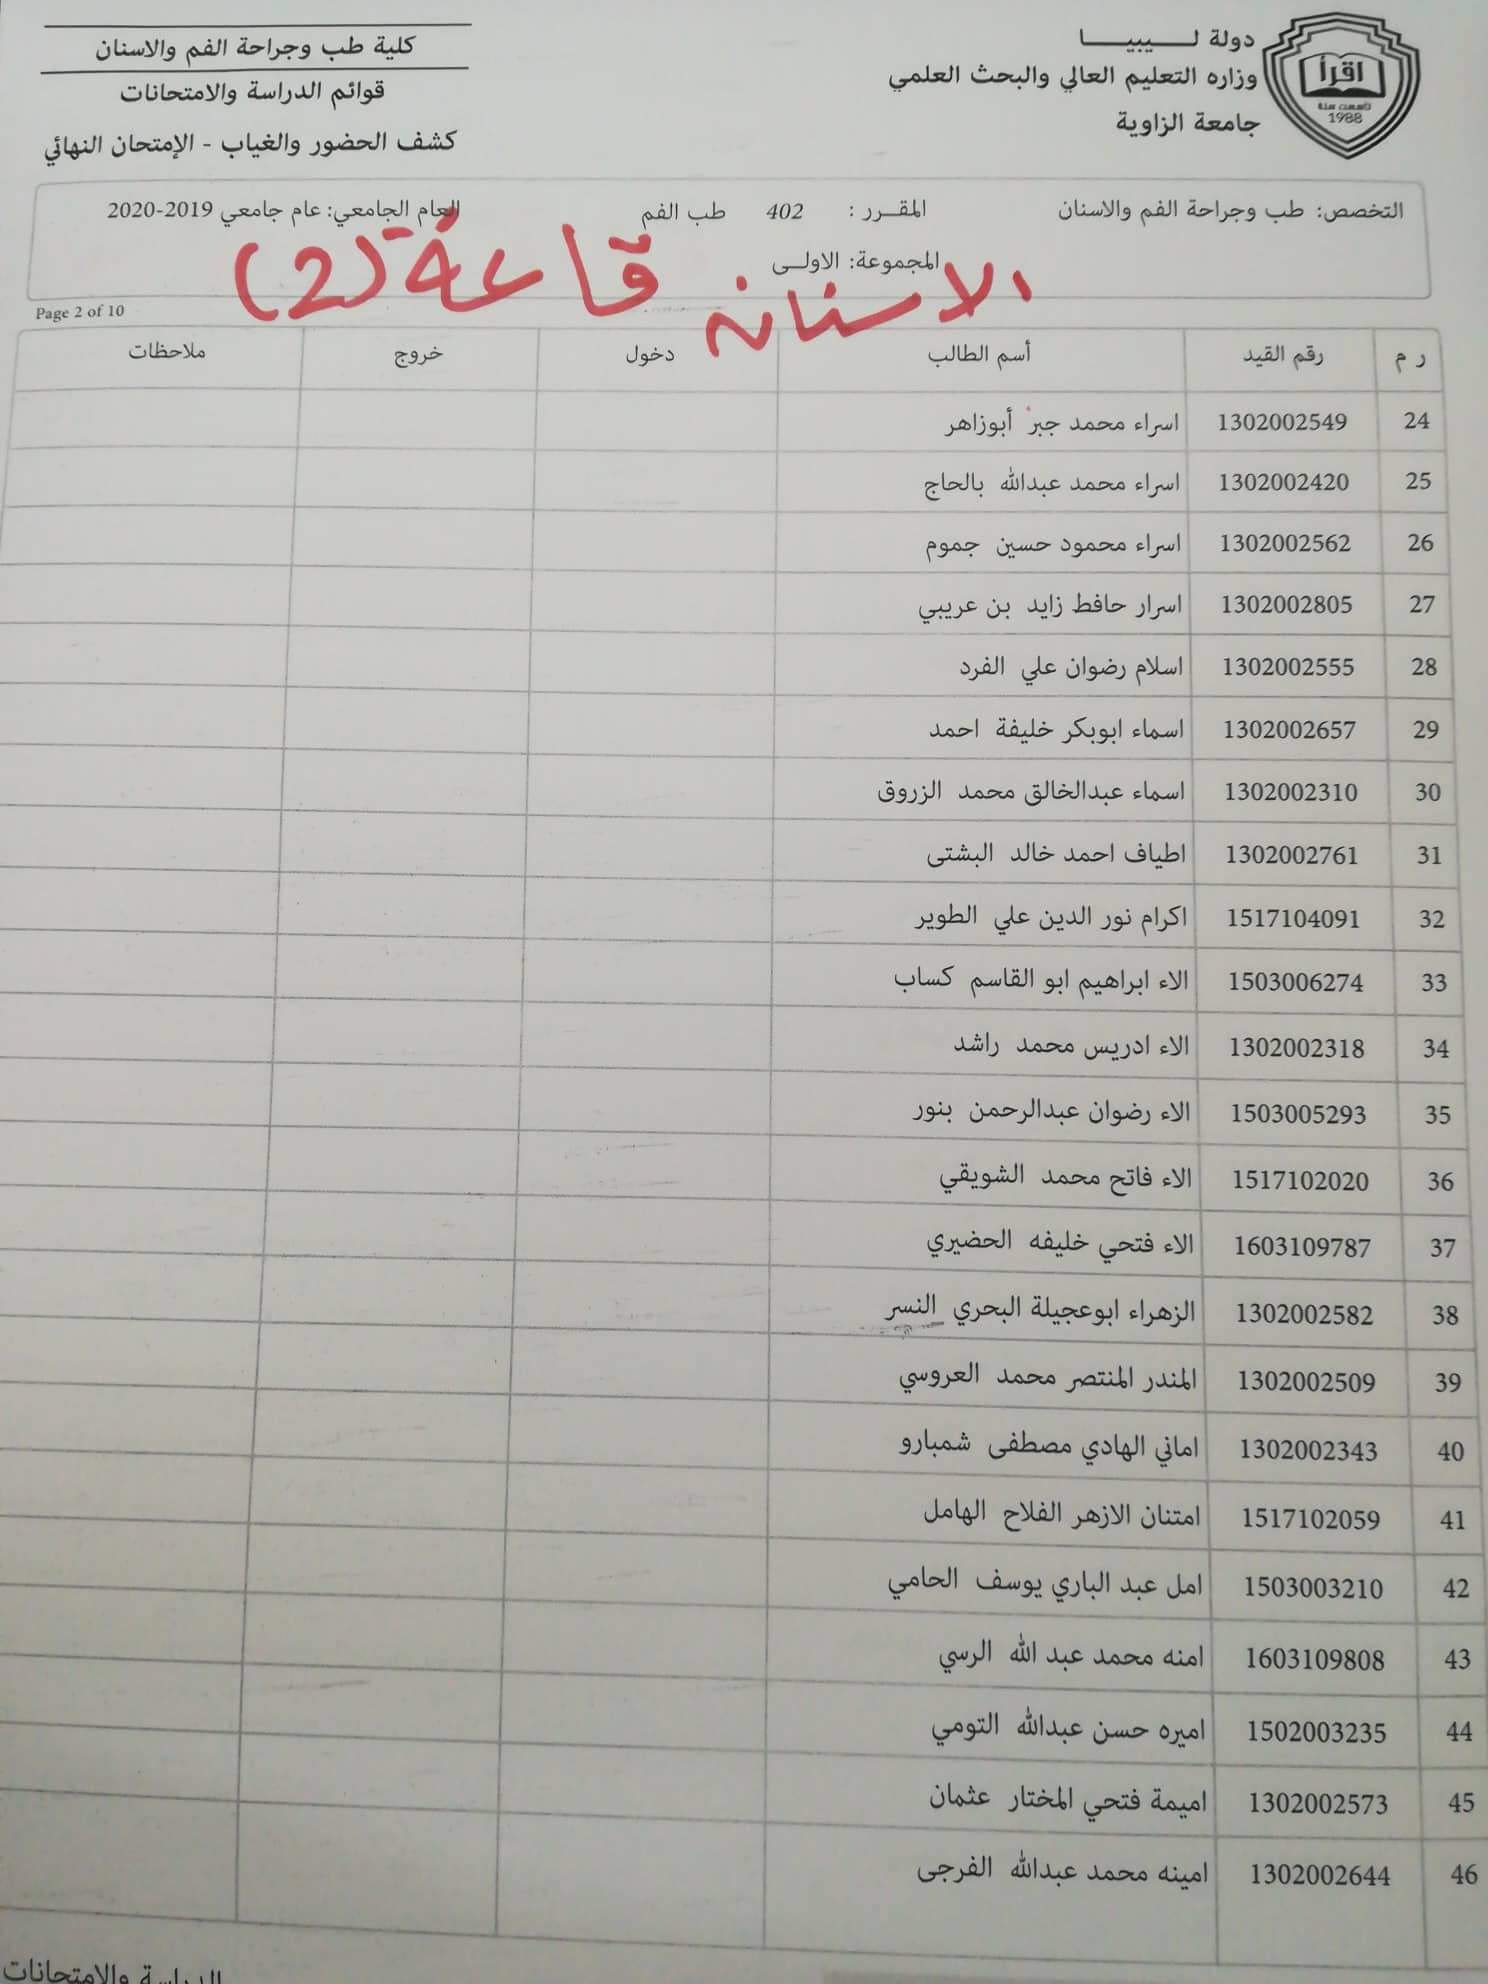 دولة لـــيبيـــا
وزاره التعليم العالي والبحث العلمي
جامعة الزاوية
اقرأ
تأسست سنة
1988
كلية طب وجراحة الفم والاسنان
قوائم الدراسة والامتحانات
كشف الحضور والغياب - الإمتحان النهائي
التخصص: طب وجراحة الفم والاسنان المقـرر : 402 طب الفم العام الجامعي: عام جامعي 2019-2020
المجموعة: الاولـى
الاسنان قاعة (2)
Page 2 of 10
ر م رقم القيد أسم الطالب دخول خروج ملاحظات
24 1302002549 اسراء محمد جبر أبوزاهر
25 1302002420 اسراء محمد عبدالله بالحاج
26 1302002562 اسراء محمود حسين جموم
27 1302002805 اسرار حافظ زايد بن عريبي
28 1302002555 اسلام رضوان علي الفرد
29 1302002657 اسماء ابوبكر خليفة احمد
30 1302002310 اسماء عبدالخالق محمد الزروق
31 1302002761 اطياف احمد خالد البشتى
32 1517104091 اكرام نور الدين علي الطوير
33 1503006274 الاء ابراهيم ابو القاسم كساب
34 1302002318 الاء ادريس محمد راشد
35 1503005293 الاء رضوان عبدالرحمن بنور
36 1517102020 الاء فاتح محمد الشويقي
37 1603109787 الاء فتحي خليفه الحضيري
38 1302002582 الزهراء ابوعجيلة البحري النسر
39 1302002509 المندر المنتصر محمد العروسي
40 1302002343 اماني الهادي مصطفى شمبارو
41 1517102059 امتنان الازهر الفلاح الهامل
42 1503003210 امل عبد الباري يوسف الحامي
43 1603109808 امنه محمد عبد الله الرسي
44 1502003235 اميره حسن عبدالله التومي
45 1302002573 اميمة فتحي المختار عثمان
46 1302002644 امينه محمد عبدالله الفرجى
الدراسة والامتحانات